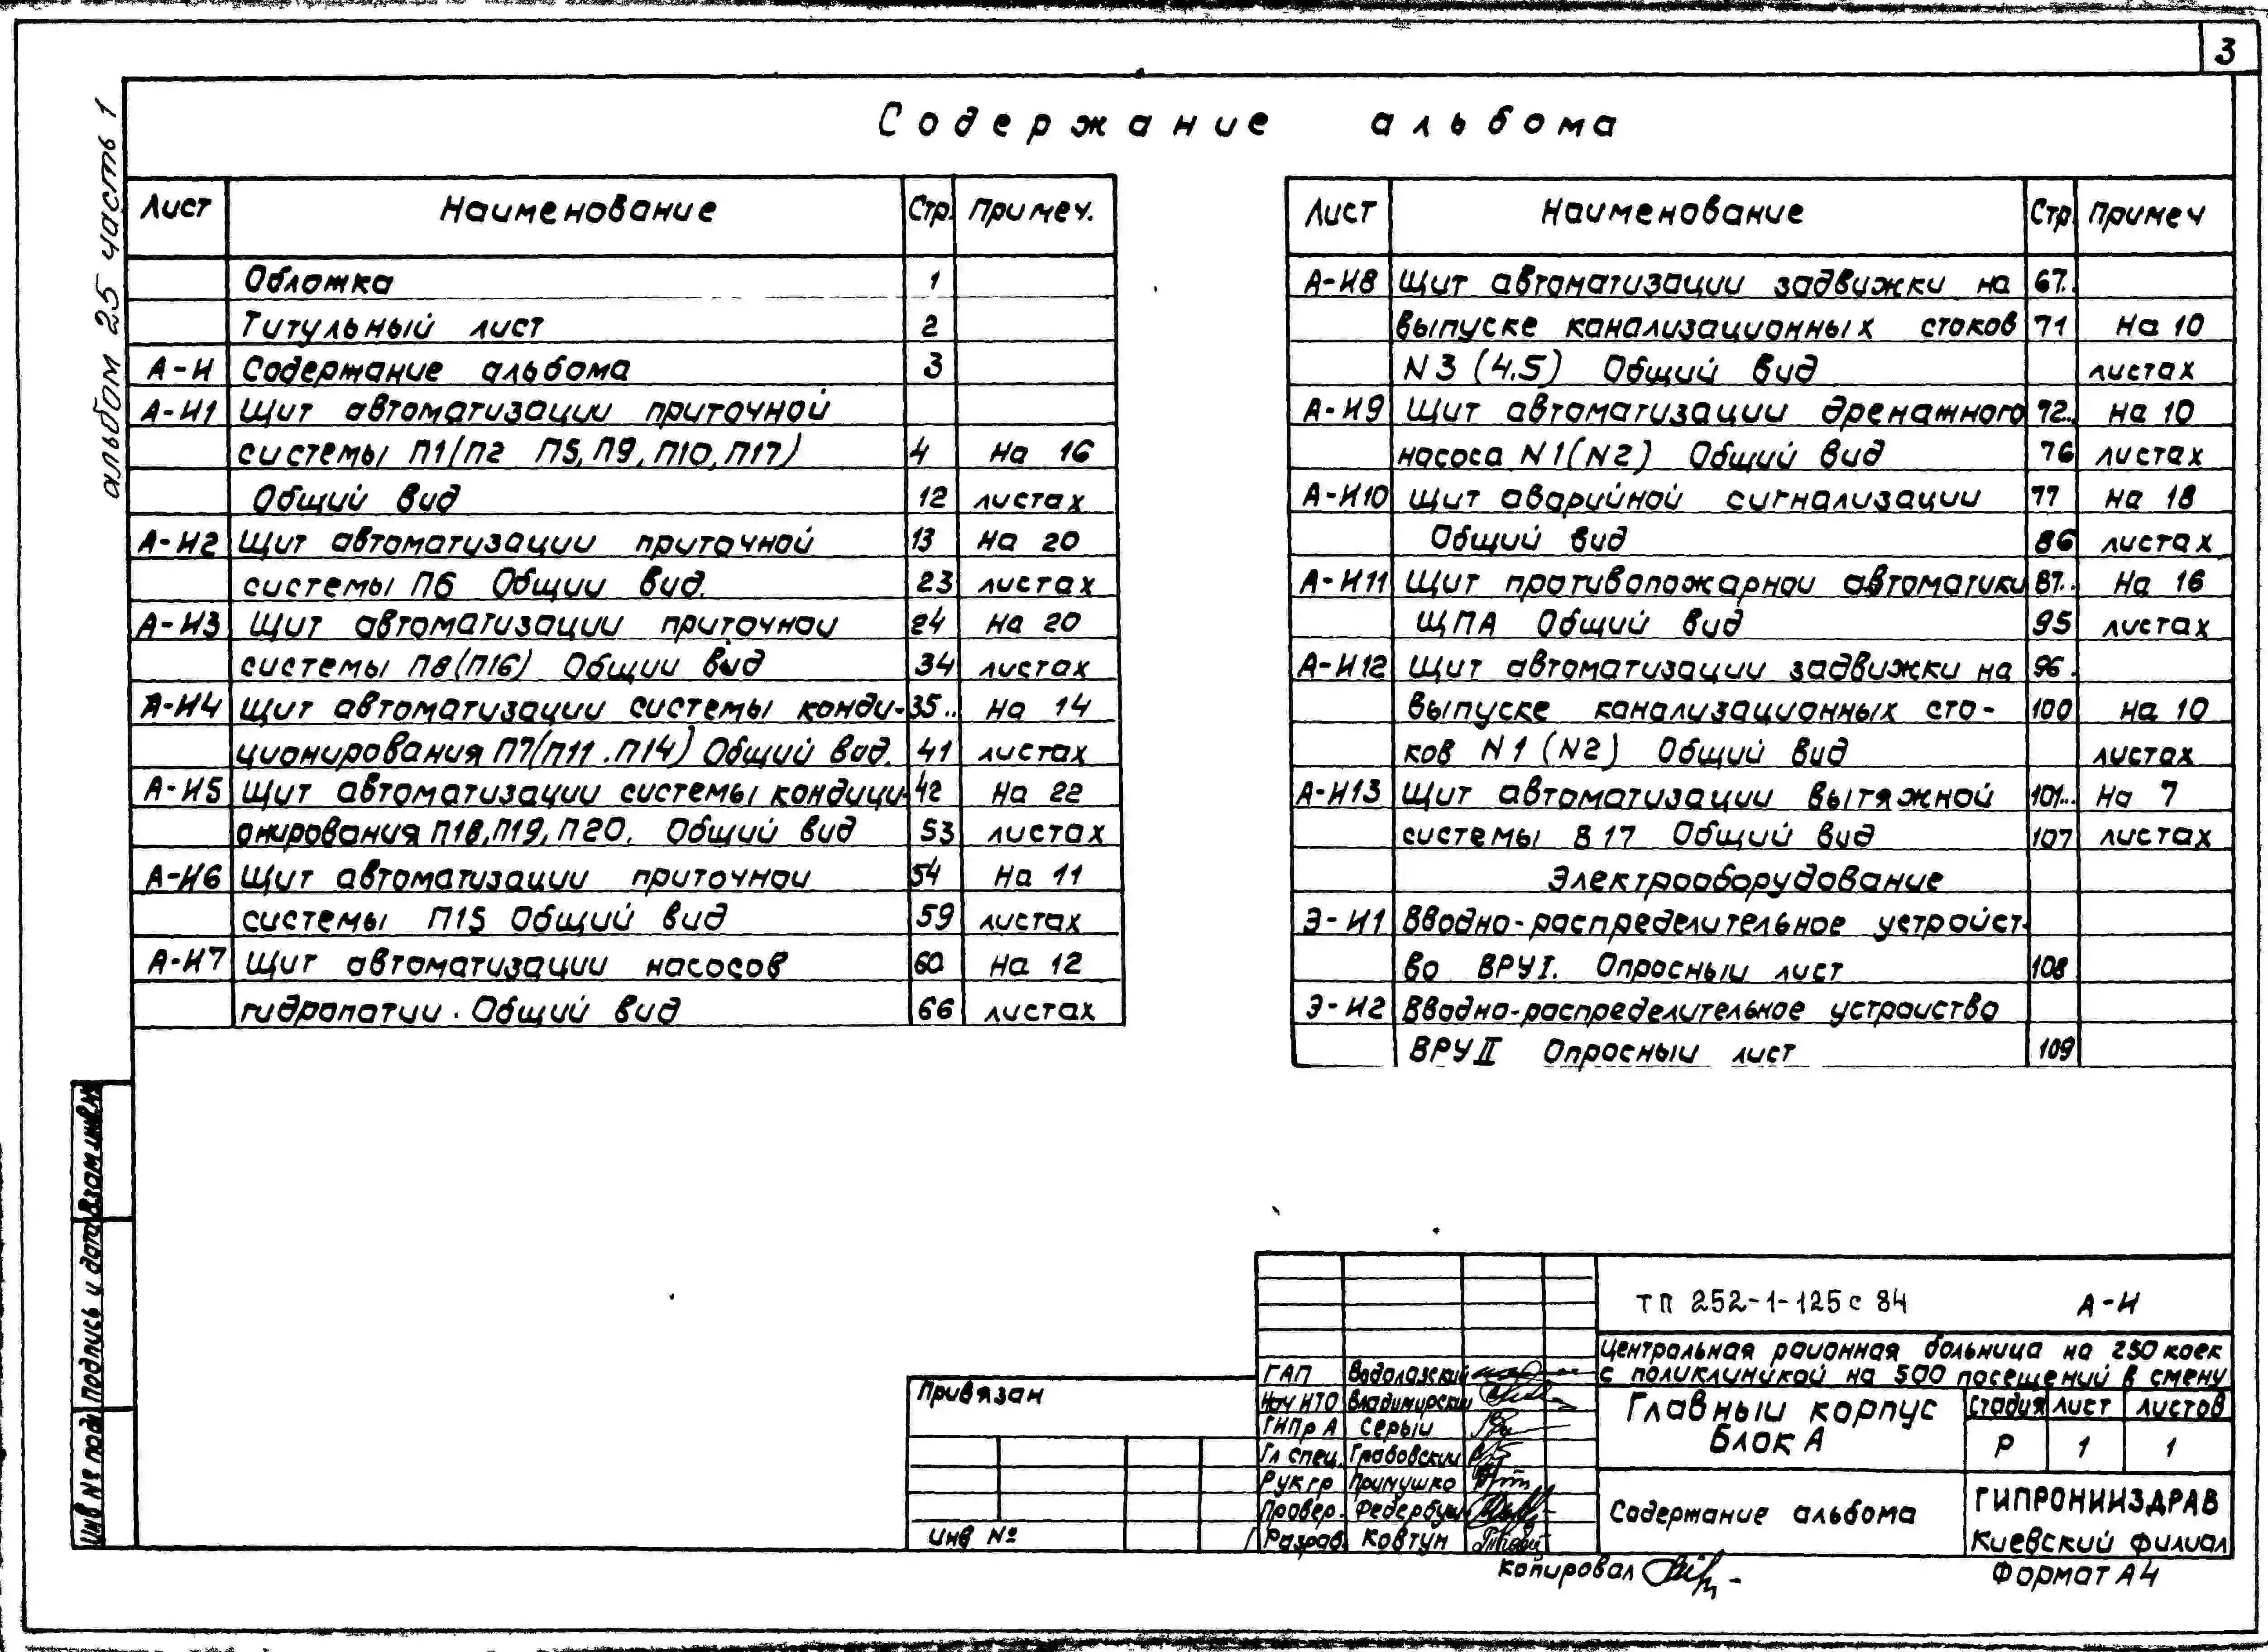 3
альбом 25 часть 1
Содержание альбома
Лист Наименование Стр. Примеч.
Обложка 1
Титульный лист 2
А-И Содержание альбома 3
А-И1 Щит автоматизации приточной
системы П1(П2 П5, П9, П10, П17) 4 На 16
Общий вид 12 листах
А-И2 Щит автоматизации приточной 13 На 20
системы П6 Общии вид. 23 листах
А-И3 Щит автоматизации приточнои 24 На 20
системы П8(П16) Общии вид 34 листах
А-И4 Щит автоматизации системы конди- 35.. На 14
ционирования П7(П11.П14) Общий вид. 41 листах
А-И5 Щит автоматизации системы кондици- 42 На 22
онирования П18, П19, П20. Общий вид 53 листах
А-И6 Щит автоматизации приточнои 54 На 11
системы П15 Общий вид 59 листах
А-И7 Щит автоматизации насосов 60 На 12
гидропатии. Общий вид 66 листах
Лист Наименование Стр. Примеч
А-И8 Щит автоматизации задвижки на 67..
выпуске канализационных стоков 71 На 10
N3 (4.5) Общий вид листах
А-И9 Щит автоматизации дренажного 72.. на 10
насоса N1(N2) Общий вид 76 листах
А-И10 Щит аварийной сигнализации 77 на 18
Общий вид 86 листах
А-И11 Щит противопожарнои автоматики 87.. На 16
ЩПА Общий вид 95 листах
А-И12 Щит автоматизации задвижки на 96.
выпуске канализационных сто- 100 на 10
ков N1 (N2) Общий вид листах
А-И13 Щит автоматизации вытяжной 101... На 7
системы В17 Общий вид 107 листах
Электрооборудование
Э-И1 Вводно-распределительное устройст-
во ВРУI. Опросный лист 108
Э-И2 Вводно-распределительное устроиство
ВРУII Опросныи лист 109
Взам инв N
Подпись и дата
Инв № подл
Привязан
Инв №
ГАП Водолазский
Нач ИТО Владимирский
ГИПр А Серыи
Гл спец. Грабовскии
Рук гр Примушко
Провер.
Разраб. Ковтун
ТП 252-1-125с 84 А-И
Центральная раионная больница на 250 коек
с поликлиникой на 500 посещений в смену
Главныи корпус
Блок А
Стадия Лист Листов
Р 1 1
Содержание альбома
ГИПРОНИИЗДРАВ
Киевский филиал
Копировал
Формат А4